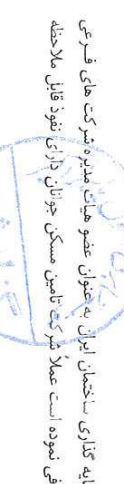 ایه گذاری ساختمان ایران به عنوان عضو هیات مدیره شرکت های فرعی
فی نموده است عملاً شرکت تامین مسکن جوانان دارای نفوذ قابل ملاحظه